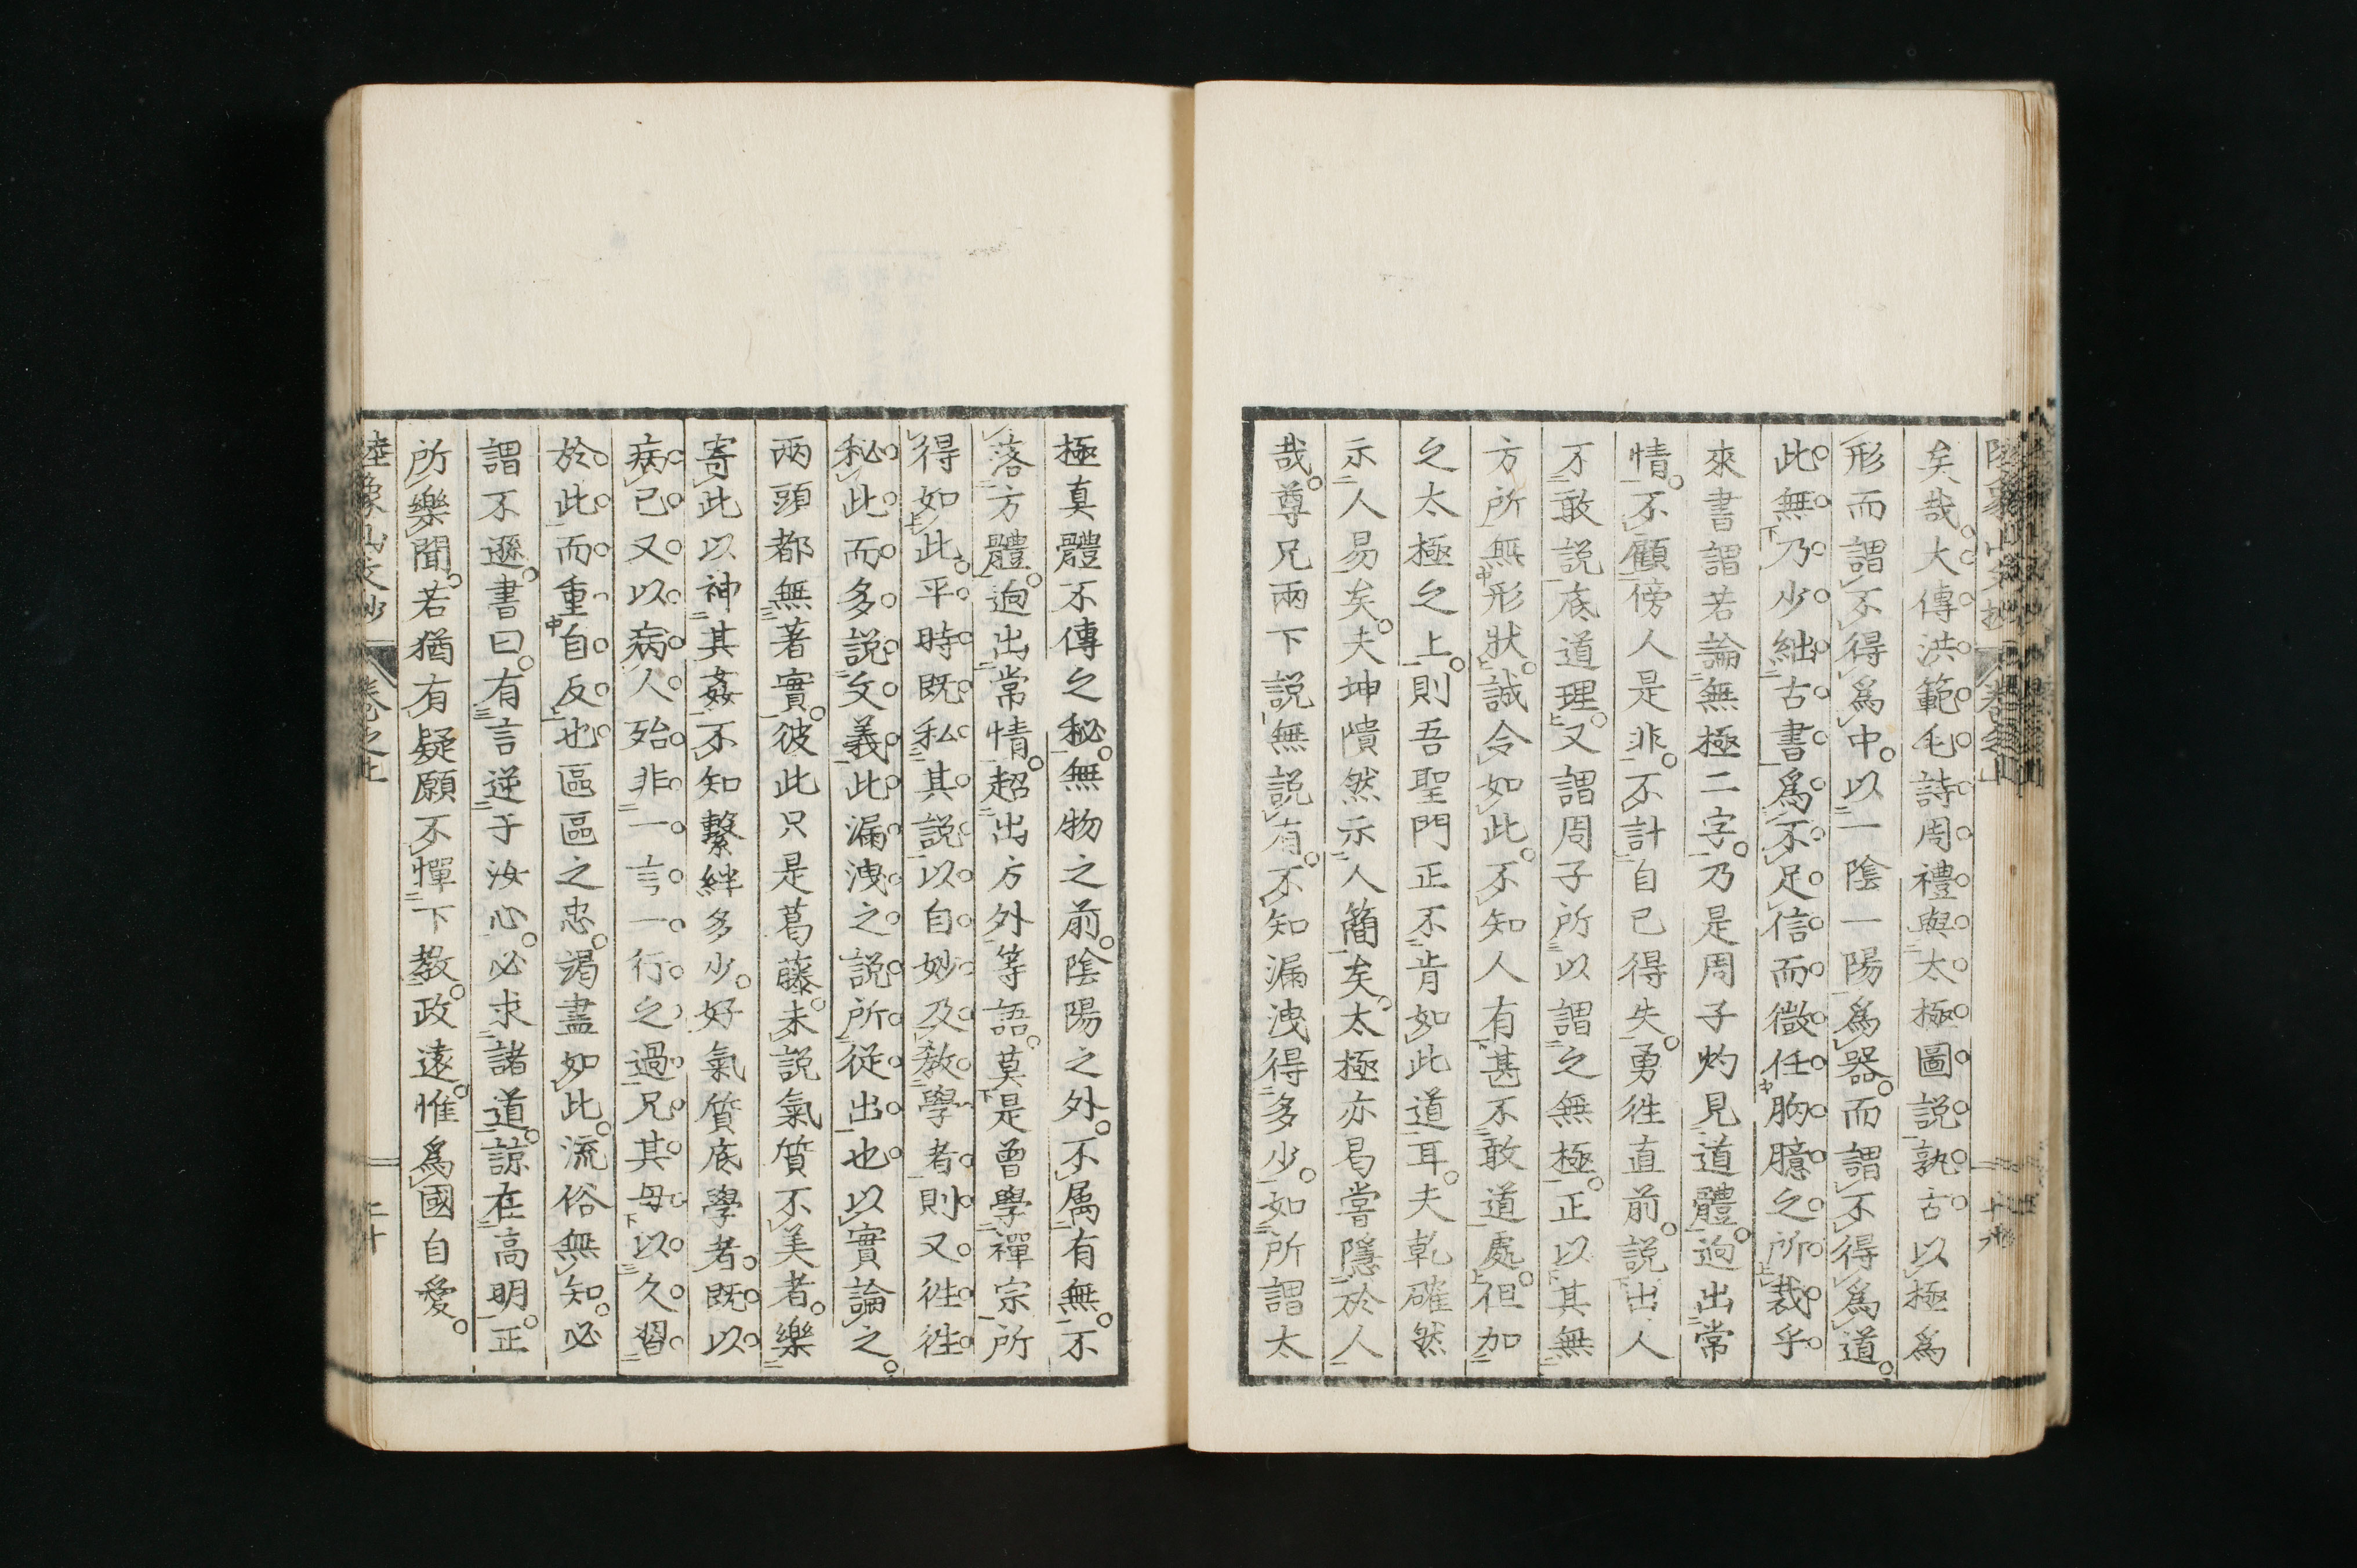 矣哉。大傳洪範毛詩周禮與太極圖説孰古以極爲
形而謂不得爲中。以一陰一陽爲器。而謂不得爲道。
此無乃少絀古書爲不足信而微任胸臆之所裁乎
來書謂若論無極二字。乃是周子灼見道體。逈出常
情。不顧傍人是非。不計自己得失。勇徃直前。説出人
不敢説底道理。又謂周子所以謂之無極。正以其無
方所無形狀。誠令如此。不知人有甚不敢道處。但加
之太極之上。則吾聖門正不肯如此道耳。夫乾確然
示人易矣。夫坤隤然示人簡矣。太極亦曷嘗隱於人
哉。尊兄兩下説無説有。不知漏洩得多少。如所謂太
極真體不傳之秘。無物之前。陰陽之外。不属有無。不
落方體。逈出常情。超出方外等語。莫是曾學禪宗所
得如此。平時既私其説以自妙及教學者則又徃徃
秘此而多説文義此漏洩之説所從出也以實論之。
兩頭都無著實。彼此只是葛藤。未説氣質不美者。樂
寄此以神其姦不知繫絆多少。好氣質底學者。既以
病已又以病人殆非一言一行之過兄其毋以久習
於此而重自反也區區之忠。竭盡如此。流俗無知。必
謂不遜。書曰。有言逆于汝心。必求諸道。諒在高明。正
所樂聞。若猶有疑願不憚下教。政遠。惟爲國自愛。
陸象山文抄 卷之上 二十